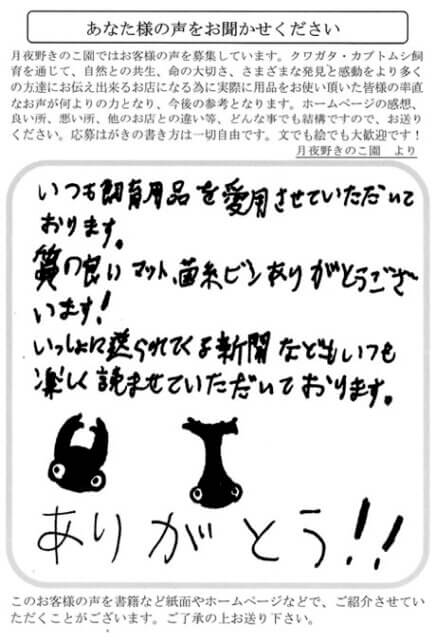 あなた様の声をお聞かせください
月夜野きのこ園ではお客様の声を募集しています。クワガタ・カブトムシ飼
育を通じて、自然との共生、命の大切さ、さまざまな発見と感動をより多く
の方達にお伝え出来るお店になる為に実際に用品をお使い頂いた皆様の率直
なお声が何よりの力となり、今後の参考となります。ホームページの感想、
良い所、悪い所、他のお店との違い等、どんな事でも結構ですので、お送り
ください。応募はがきの書き方は一切自由です。文でも絵でも大歓迎です！
月夜野きのこ園　より
いつも飼育用品を愛用させていただいて
おります。
質の良いマット、菌糸ビンありがとうござ
います！
いっしょに送られてくる新聞などもいつも
楽しく読ませていただいております。
ありがとう！！
このお客様の声を書籍など紙面やホームページなどで、ご紹介させていた
だくことがございます。ご了承の上お送り下さい。